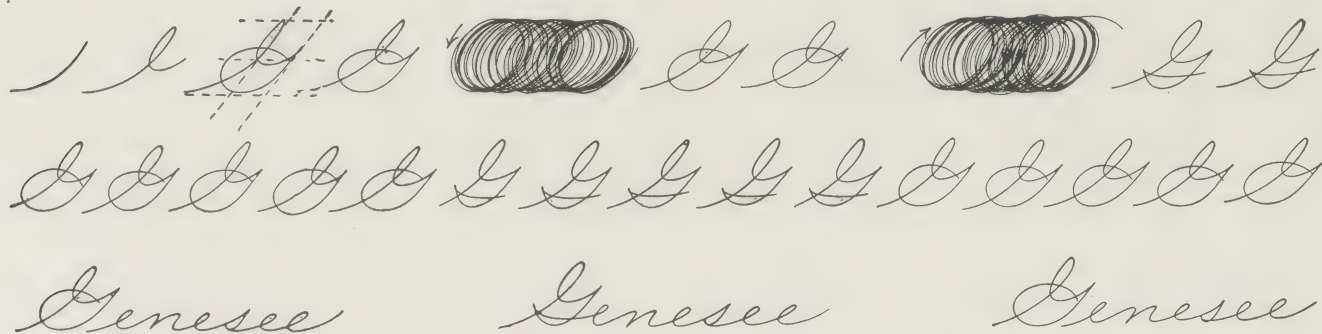 G G G G G G
G G G G G G G G G G G G G G G
Genesee Genesee Genesee